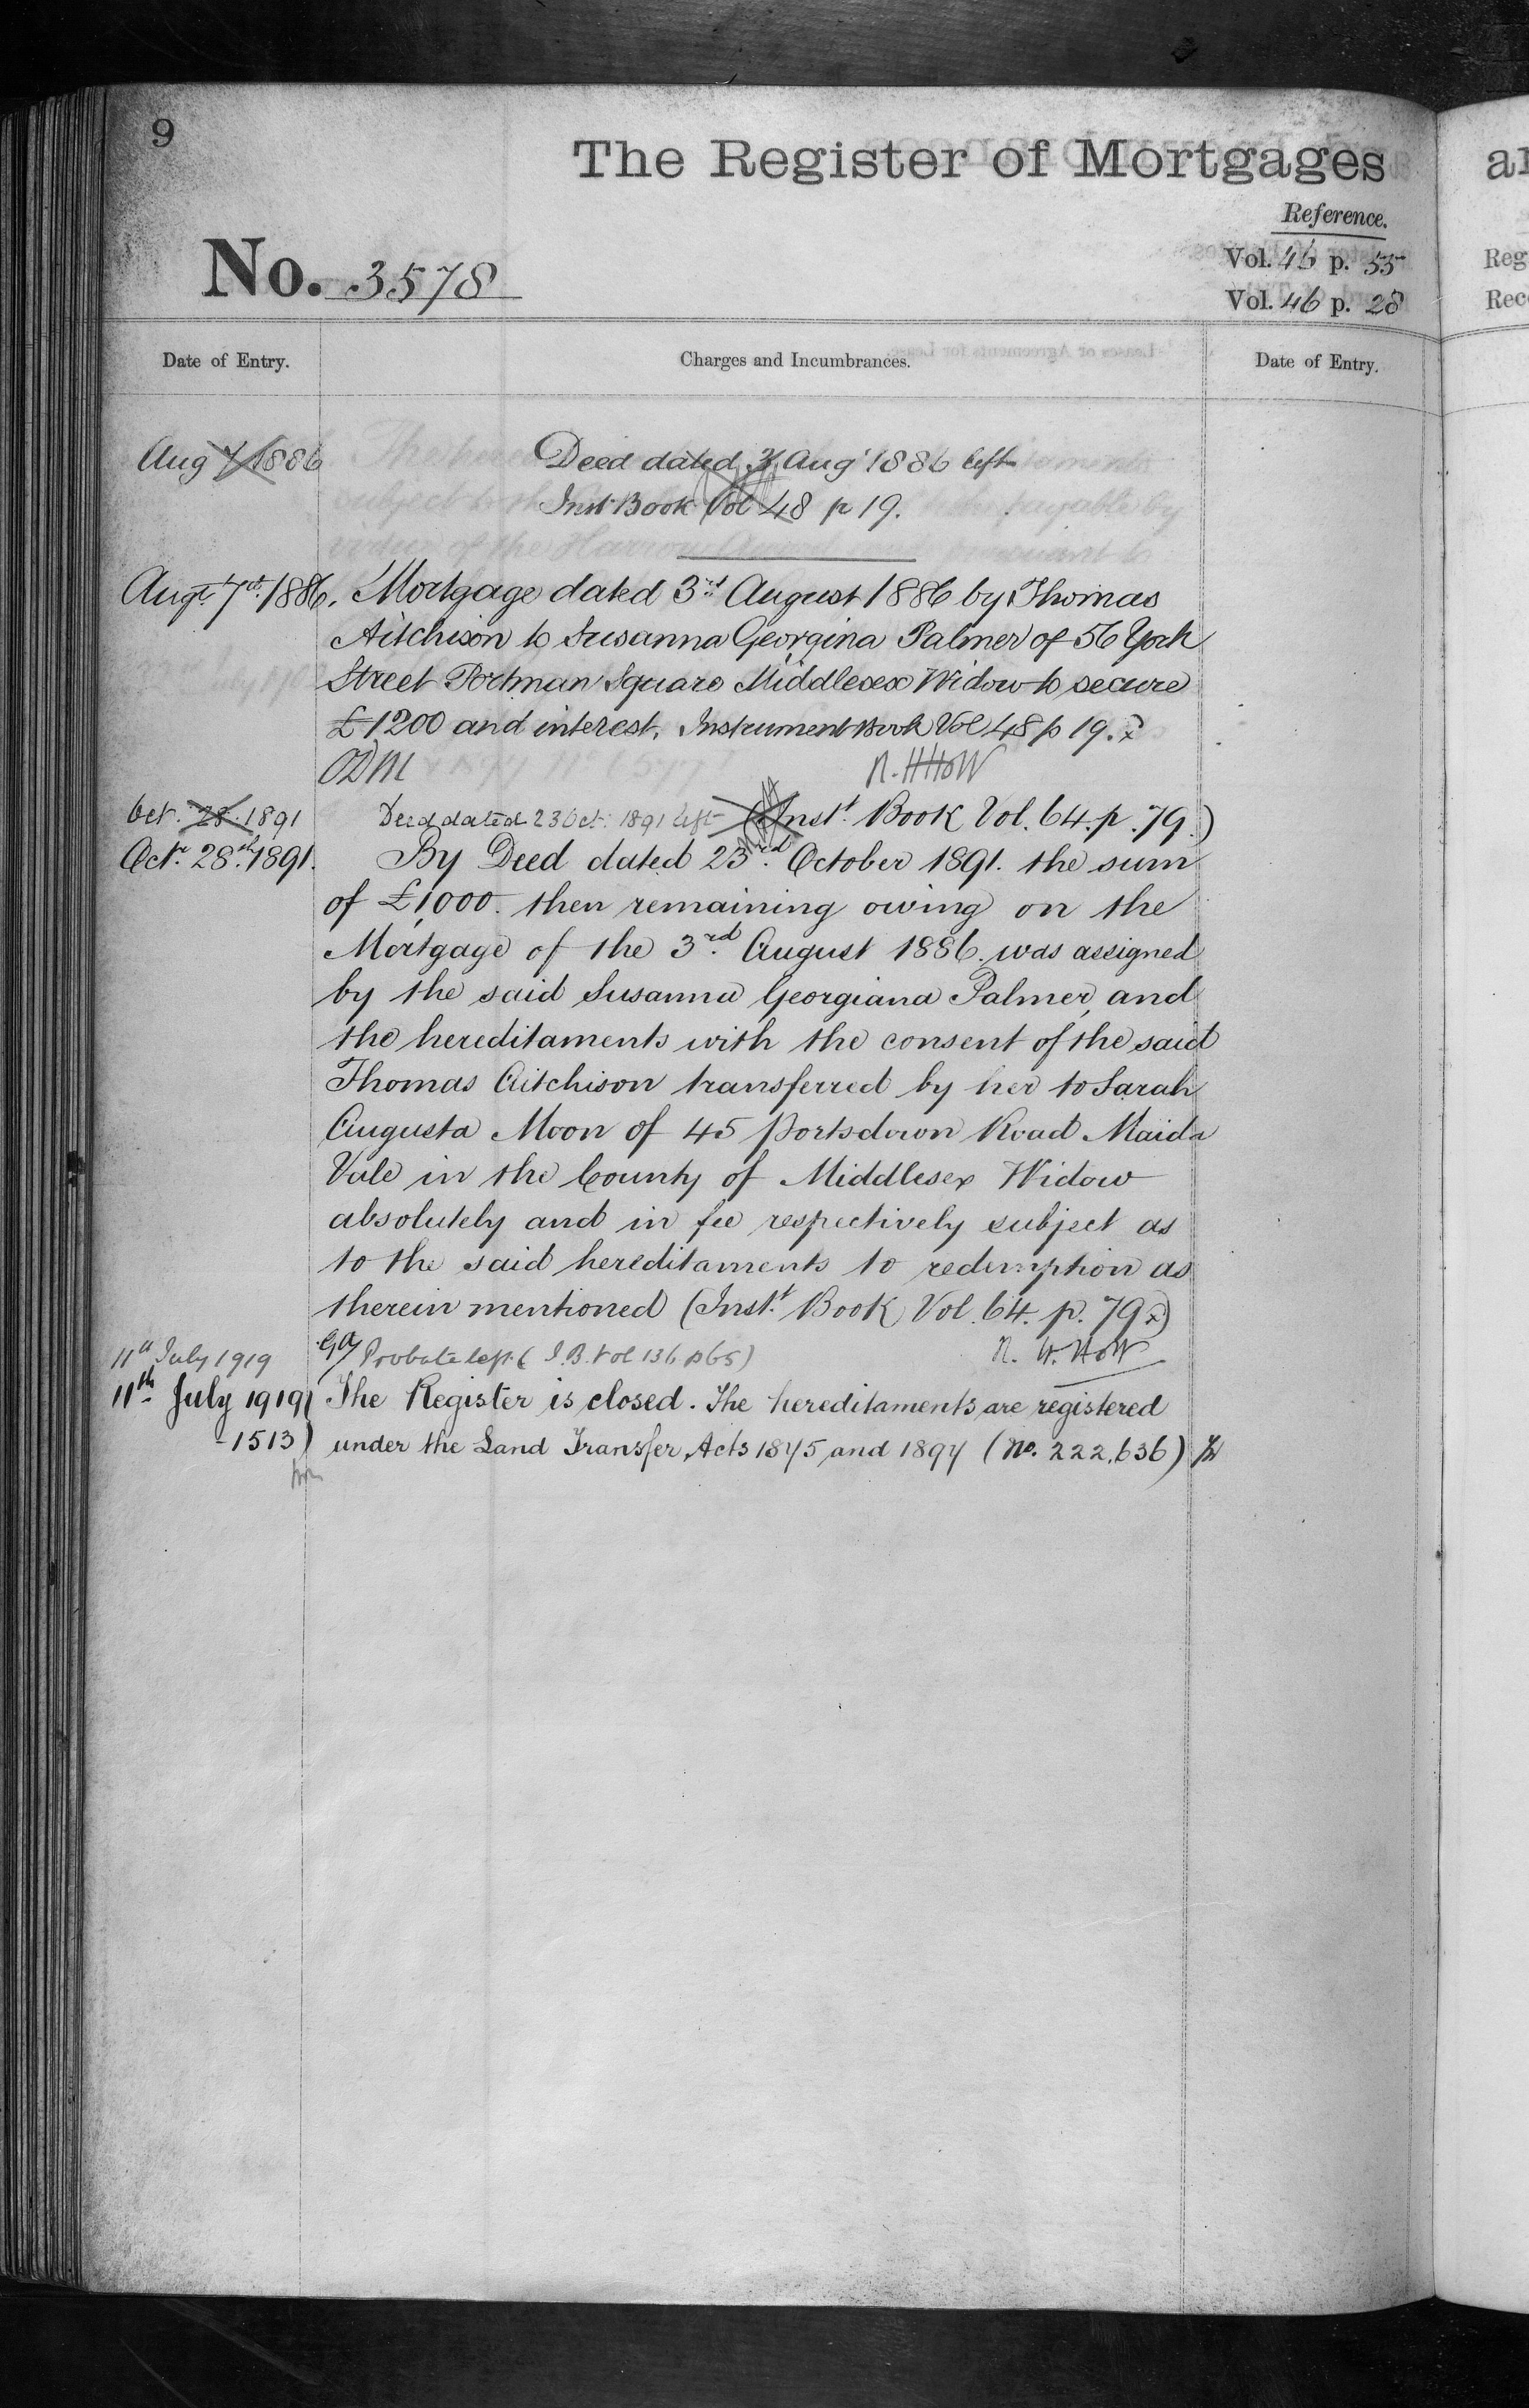 9
The Register of Mortgages
Reference.
No. 3578
Vol. 46 p. 55
Vol. 46 p. 28
Date of Entry.
Charges and Incumbrances.
Date of Entry.
Aug 7 1886
Deed dated 3 Aug 1886 left
Inst Book Vol 48 p 19.
Augt. 7th. 1886. Mortgage dated 3rd August 1886 by Thomas
Aitchison to Susanna Georgina Palmer of 56 York
Street Portman Square Middlesex Widow to secure
£1200 and interest. Instrument Book Vol 48 p 19.
ODM
Oct. 28. 1891 Deed dated 23 Oct. 1891 left (Inst. Book Vol. 64. p. 79.)
Octr. 28th. 1891. By Deed dated 23rd. October 1891. the sum
of £1,000. then remaining owing on the
Mortgage of the 3rd. August 1886. was assigned
by the said Susanna Georgiana Palmer, and
the hereditaments with the consent of the said
Thomas Aitchison transferred by her to Sarah
Augusta Moon of 45 Portsdown Road Maida
Vale in the County of Middlesex Widow
absolutely and in fee respectively subject as
to the said hereditaments to redemption as
therein mentioned (Inst. Book Vol. 64. p. 79.)
11th July 1919 Probate left (I.B. Vol 136 p 65)
11th. July 1919 The Register is closed. The hereditaments are registered
1513) under the Land Transfer Acts 1875 and 1897 (No. 222,636)
Reg
Rec